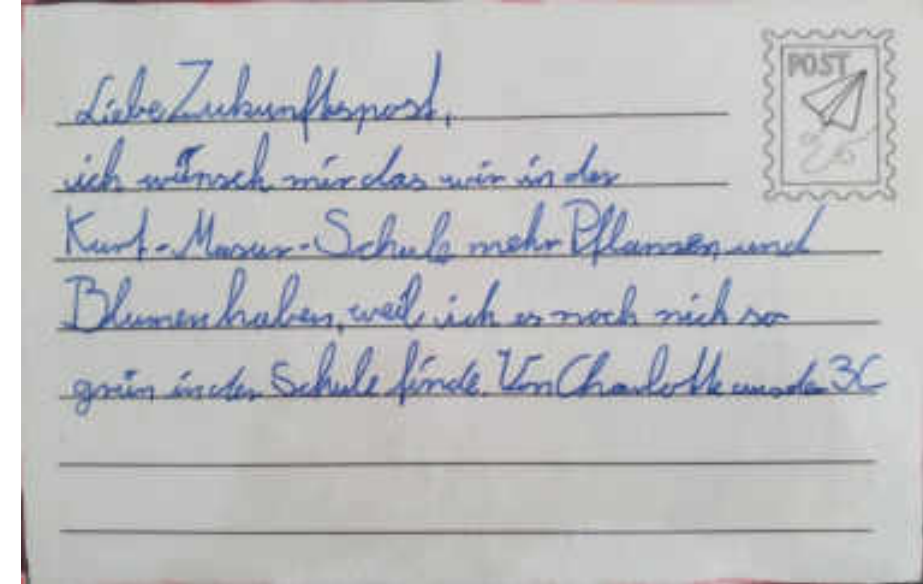 POST
Liebe Zukunftspost,
ich wünsch mir das wir in der
Kurt-Masur-Schule mehr Pflanzen und
Blumen haben, weil ich es noch nich so
grün in der Schule finde. Von Charlotte aus der 3C